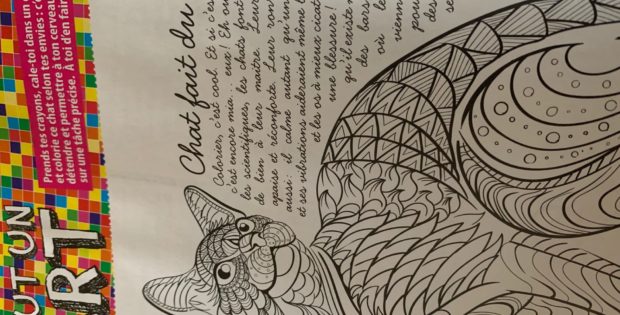 UT UN
RT
Prends tes crayons, cale-toi dans un
et colorie ce chat selon tes envies : c'
détendre et permettre à ton cerveau
sur une tâche précise. À toi d'en fair
Chat fait du
Colorier, c'est cool. Et si c'es
c'est encore mia... eux! Eh ou
les scientifiques, les chats font
de bien à leur maître. Leur
apaise et réconforte. Leur ron
aussi : il calme autant qu'un
et ses vibrations aideraient même l
et les os à mieux cicat
une blessure!
qu'il existe
des bars
où le
vienn
pou
de
se